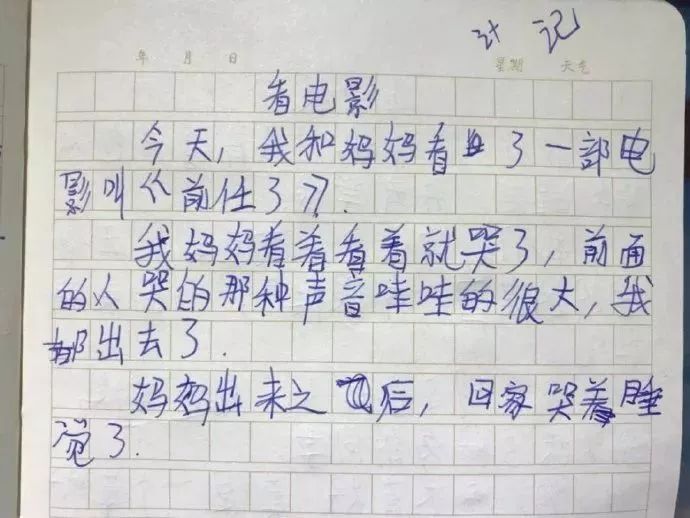 记
年 月 日 星期 天气
看电影
今天，我和妈妈看了一部电
影叫《前任3》.
我妈妈看着看着就哭了，前面
的人哭的那种声音哇哇的很大，我
都出去了.
妈妈出来之后，回家哭着睡
觉了.